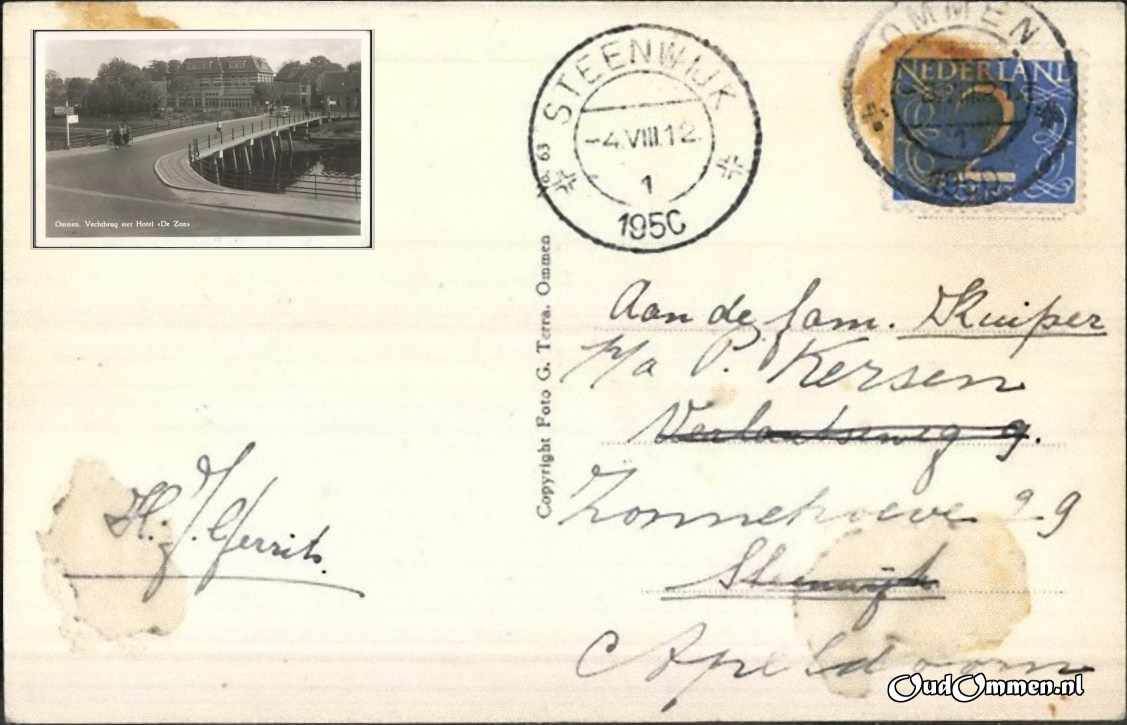 Ommen, Vechtbrug met Hotel «De Zon»
STEENWIJK
-4.VIII.12.
1
1950
OMMEN
NEDERLAND
2
1950
No. 63
Copyright Foto G. Terra. Ommen
Aan de fam. Kuiper
p/a P. Kersen
Verlaatseweg 9.
Zonnehoeve 29
Steenwijk
Apeldoorn
H. J. Gerrits.
OudOmmen.nl